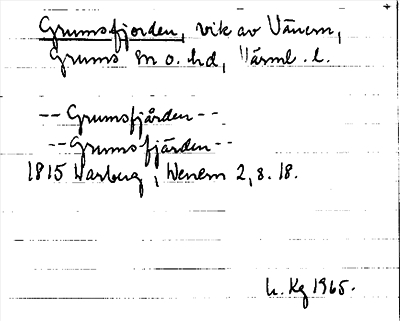 Grumsfjorden, vik av Vänern,
Grums sn o. hd, Värml. l.
-- Grumsfjården --
-- Grumsfjärden --
1815 Warberg, Wenern 2, s. 18.
L. Kg 1965.